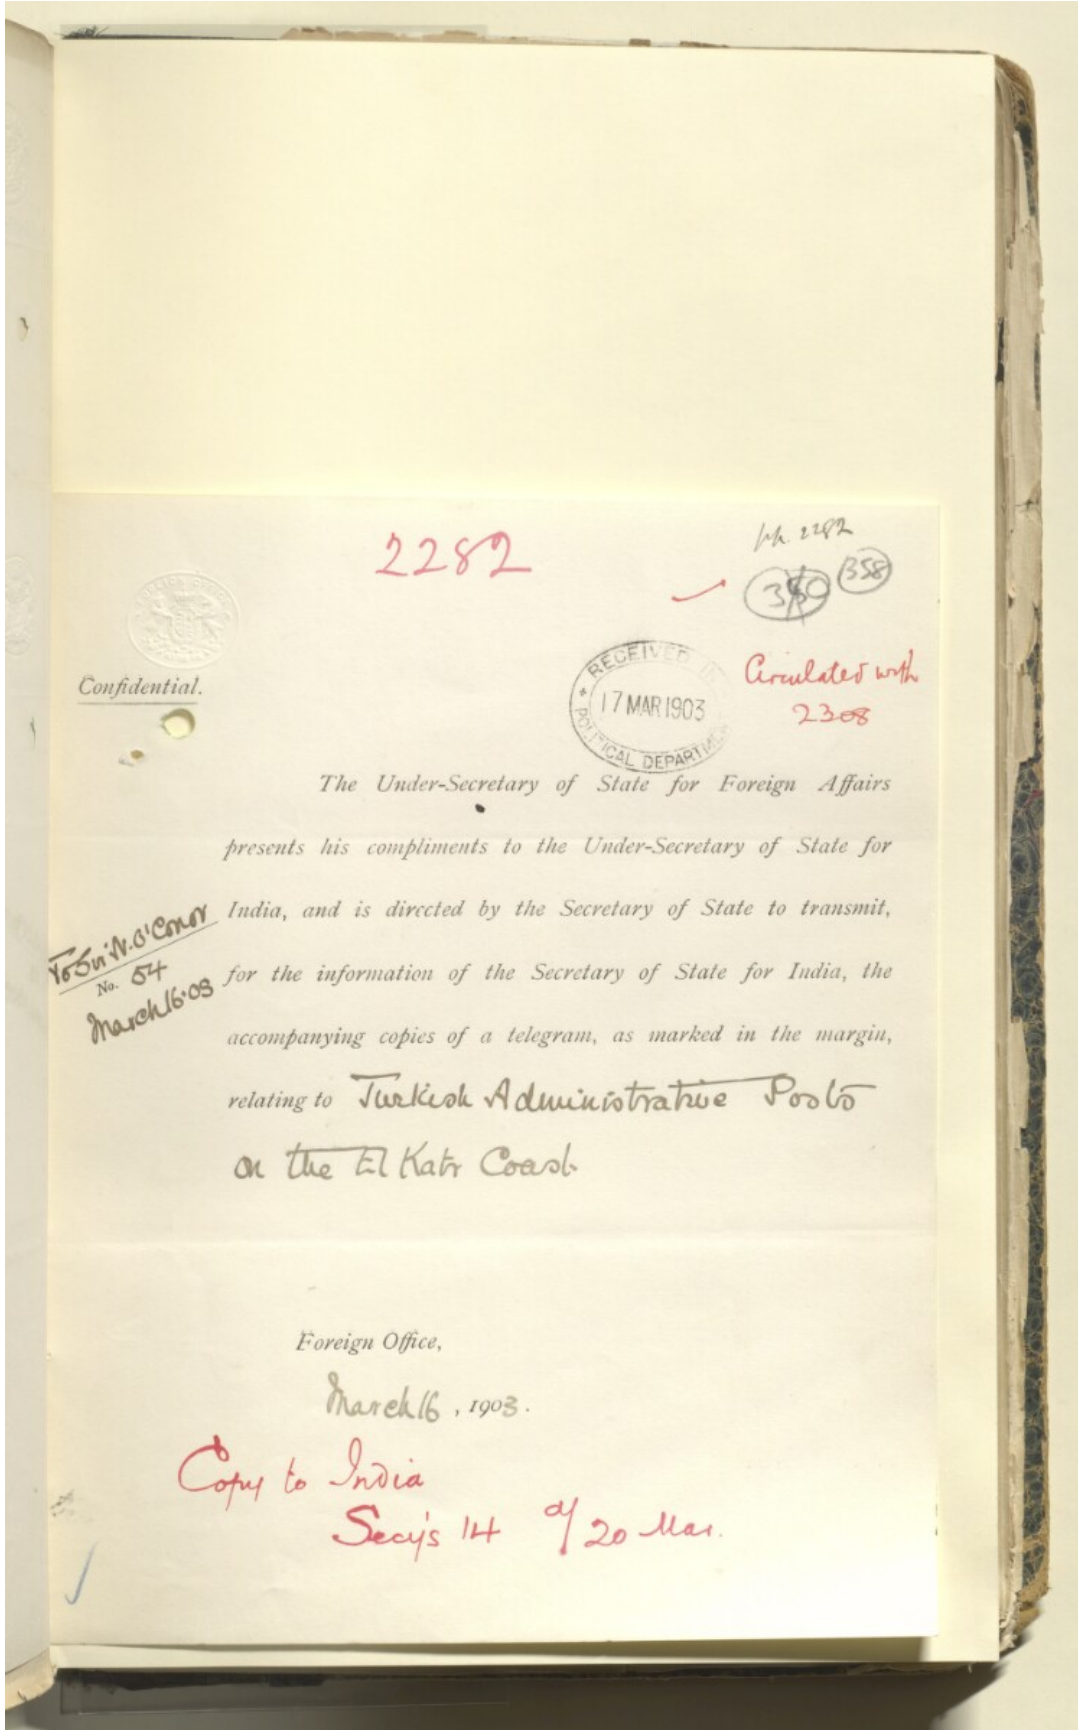 2282
pp. 2282
350
358
FOREIGN OFFICE
Confidential.
RECEIVED
17 MAR 1903
POLITICAL DEPARTME
Circulated with
2308
The Under-Secretary of State for Foreign Affairs
presents his compliments to the Under-Secretary of State for
India, and is directed by the Secretary of State to transmit,
To Sir N. O'Conor
No. 54
March 16.03
for the information of the Secretary of State for India, the
accompanying copies of a telegram, as marked in the margin,
relating to Turkish Administrative Posts
on the El Katr Coast
Foreign Office,
March 16, 1903.
Copy to India
Secy's 14 of 20 Mar.